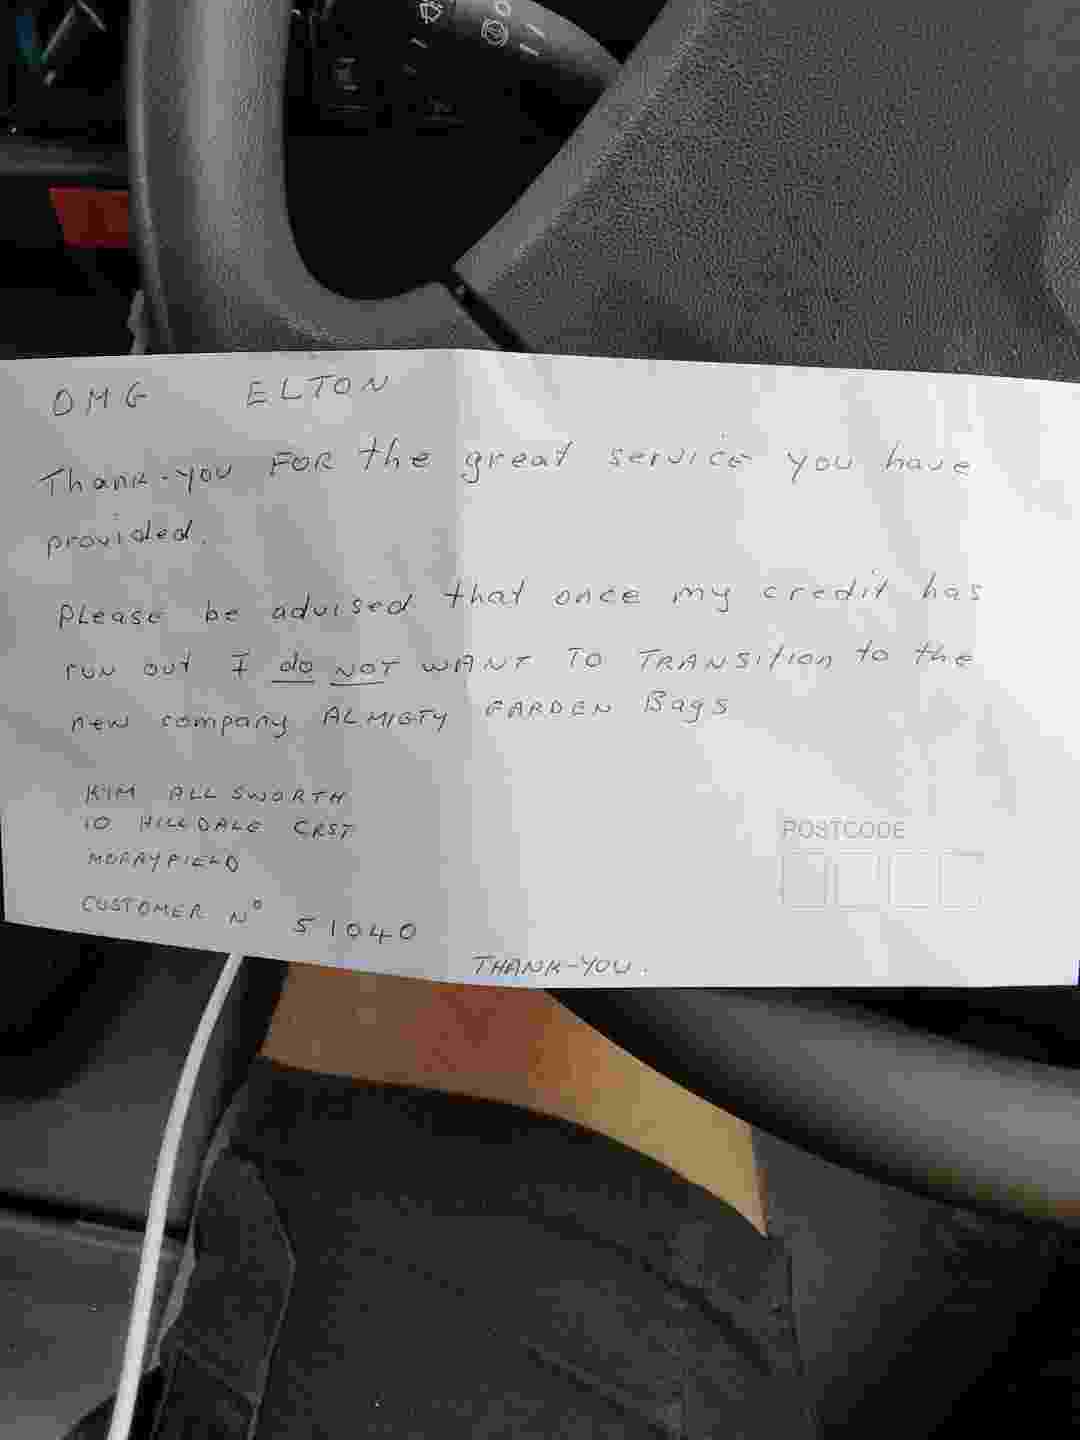 OMG ELTON
Thank-you FOR the great service you have
provided.
Please be advised that once my credit has
run out I do NOT WANT TO TRANSition to the
new company ALMIGTY GARDEN Bags
KIM ALLSWORTH
10 HILLDALE CRST
MORAYFIELD
CUSTOMER No 51040
THANK-YOU.
POSTCODE